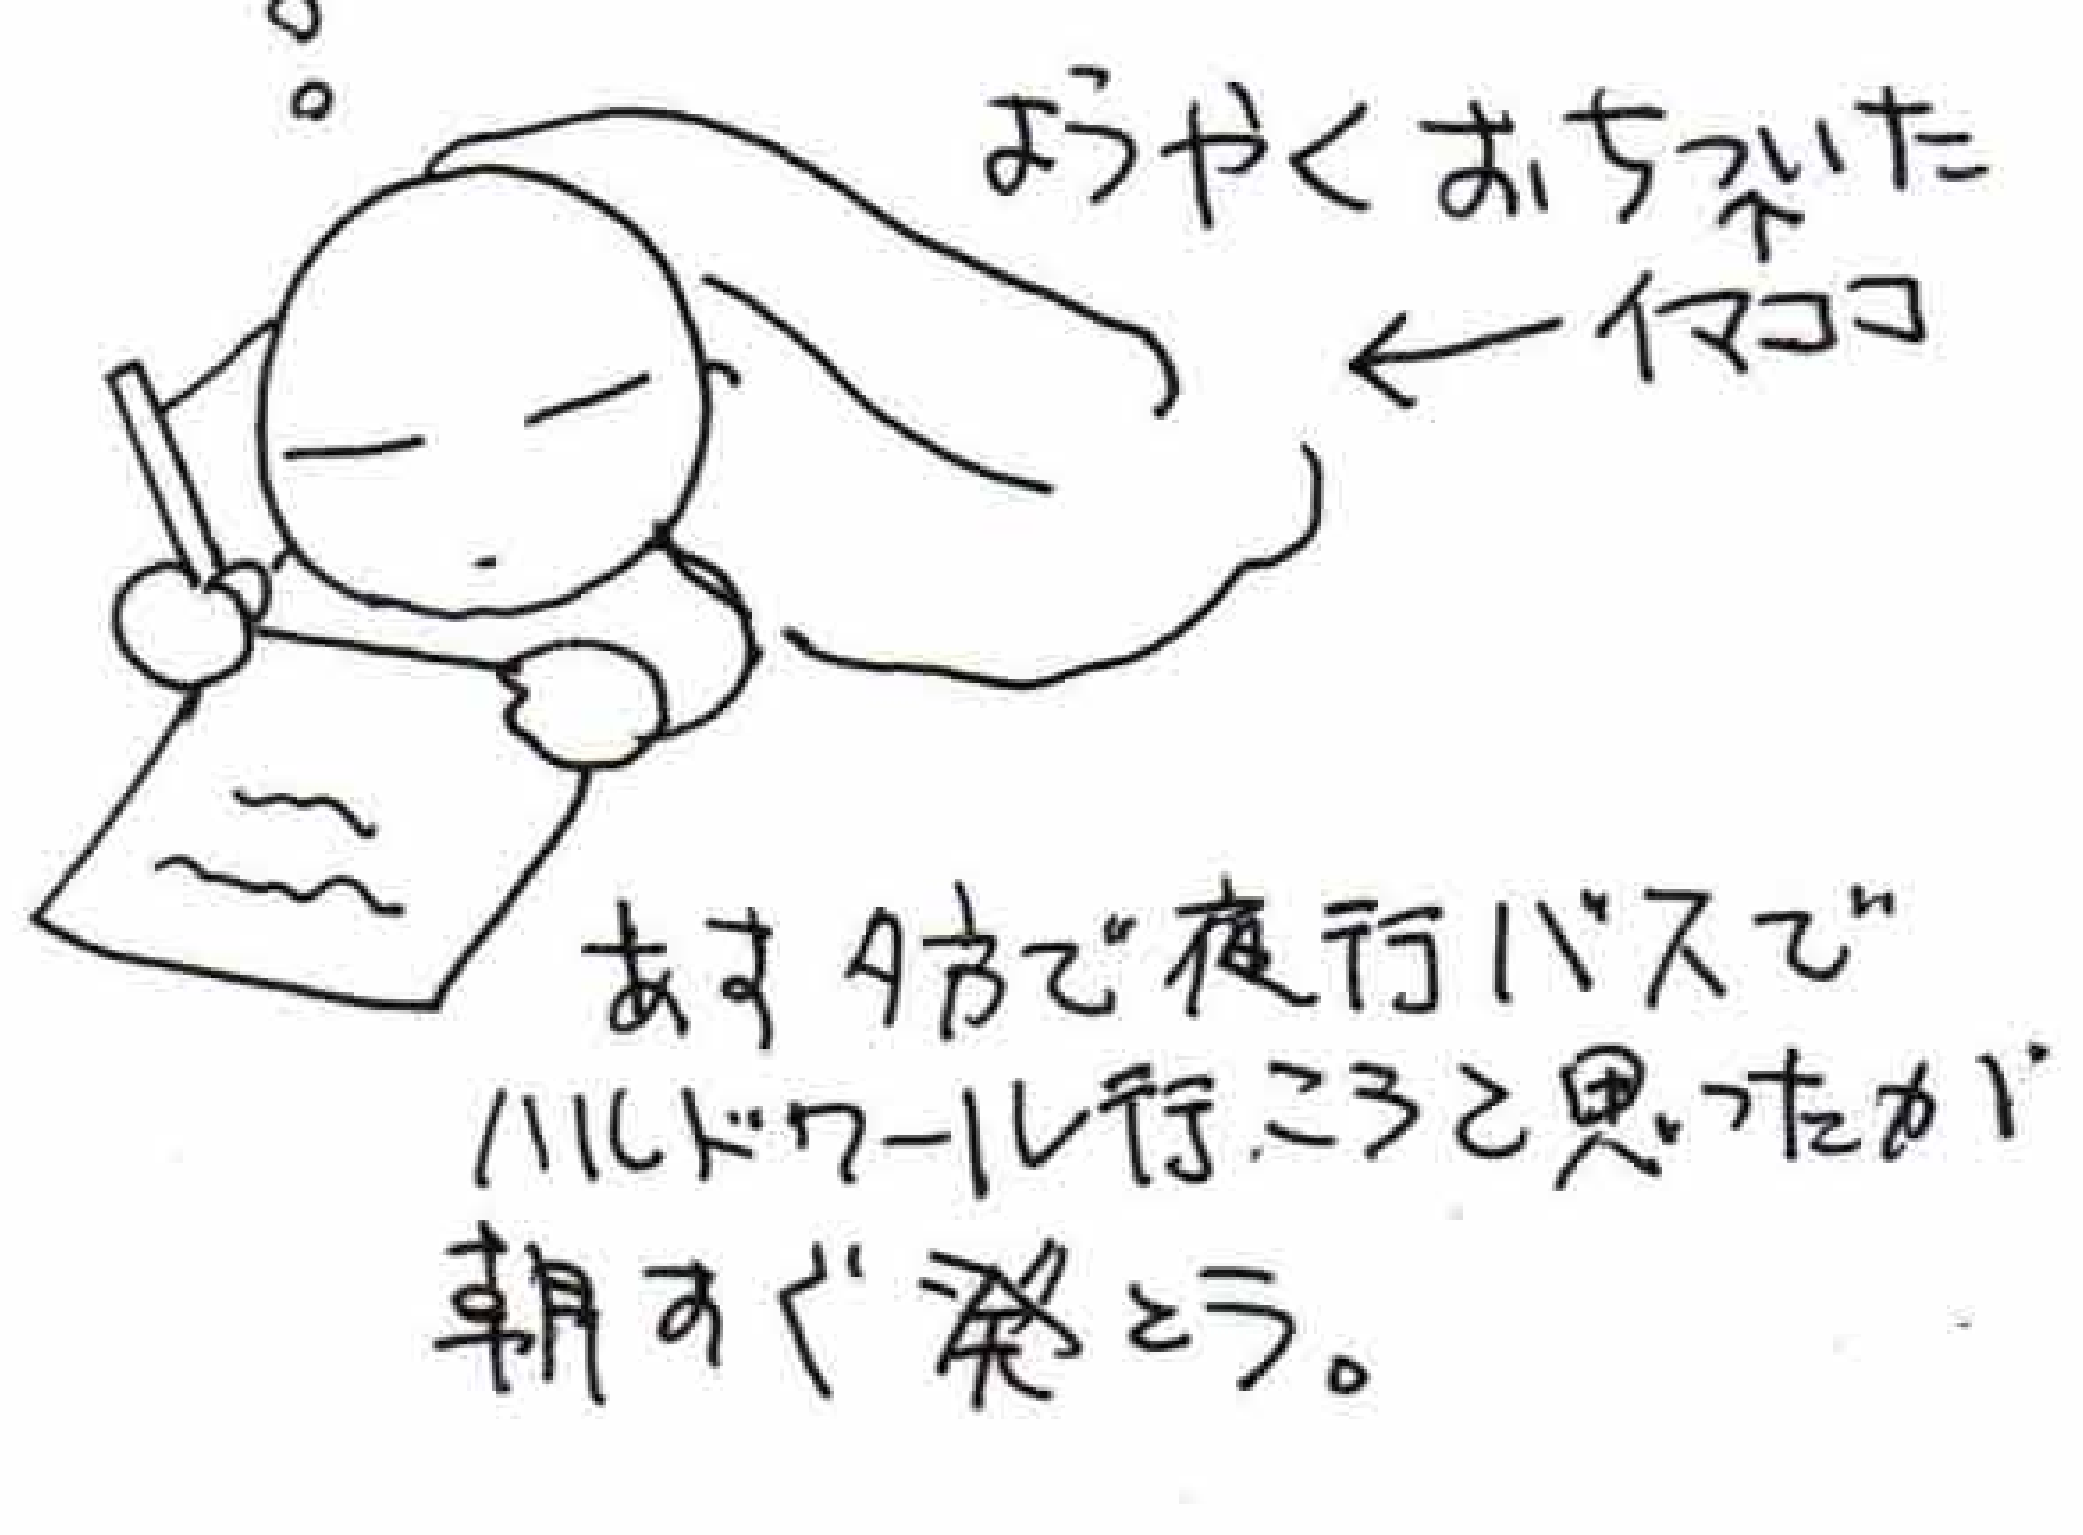 ようやくおちついた
↑
←イマココ
あす夕方で夜行バスで
ハルドワール行ころと思ったが
朝すぐ発とう。